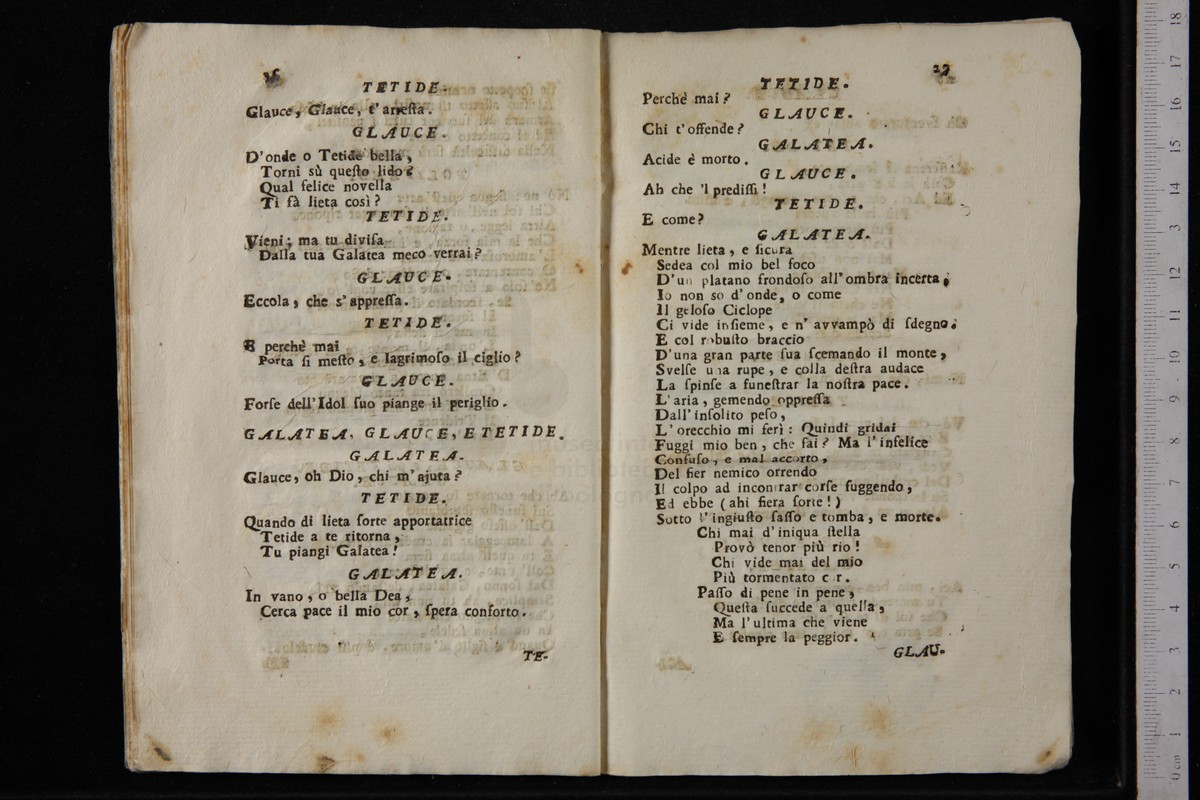 TETIDE.
Glauce, Glauce, t'arresta.
GLAUCE.
D'onde o Tetide bella,
Torni sù questo lido?
Qual felice novella
Ti fà lieta così?
TETIDE.
Vieni; ma tu divisa
Dalla tua Galatea meco verrai?
GLAUCE.
Eccola, che s'appressa.
TETIDE.
E perchè mai
Porta sì mesto, e lagrimoso il ciglio?
GLAUCE.
Forse dell'Idol suo piange il periglio.
GALATEA, GLAUCE, E TETIDE.
GALATEA.
Glauce, oh Dio, chi m'ajuta?
TETIDE.
Quando di lieta sorte apportatrice
Tetide a te ritorna,
Tu piangi Galatea!
GALATEA.
In vano, o bella Dea,
Cerca pace il mio cor, spera conforto.
TE-
27
TETIDE.
Perchè mai?
GLAUCE.
Chi t'offende?
GALATEA.
Acide è morto.
GLAUCE.
Ah che 'l predissi!
TETIDE.
E come?
GALATEA.
Mentre lieta, e sicura
Sedea col mio bel foco
D'un platano frondoso all'ombra incerta,
Io non so d'onde, o come
Il geloso Ciclope
Ci vide insieme, e n'avvampò di sdegno.
E col robusto braccio
D'una gran parte sua scemando il monte,
Svelse una rupe, e colla destra audace
La spinse a funestrar la nostra pace.
L'aria, gemendo oppressa
Dall'insolito peso,
L'orecchio mi ferì: Quindi gridai
Fuggi mio ben, che fai? Ma l'infelice
Confuso, e mal accorto,
Del fier nemico orrendo
Il colpo ad incontrar corse fuggendo,
Ed ebbe (ahi fiera sorte!)
Sotto l'ingiusto sasso e tomba, e morte.
Chi mai d'iniqua stella
Provò tenor più rio!
Chi vide mai del mio
Più tormentato c r.
Passo di pene in pene,
Questa succede a quella,
Ma l'ultima che viene
E sempre la peggior.
GLAU-
0 cm 1 2 3 4 5 6 7 8 9 10 11 12 13 14 15 16 17 18